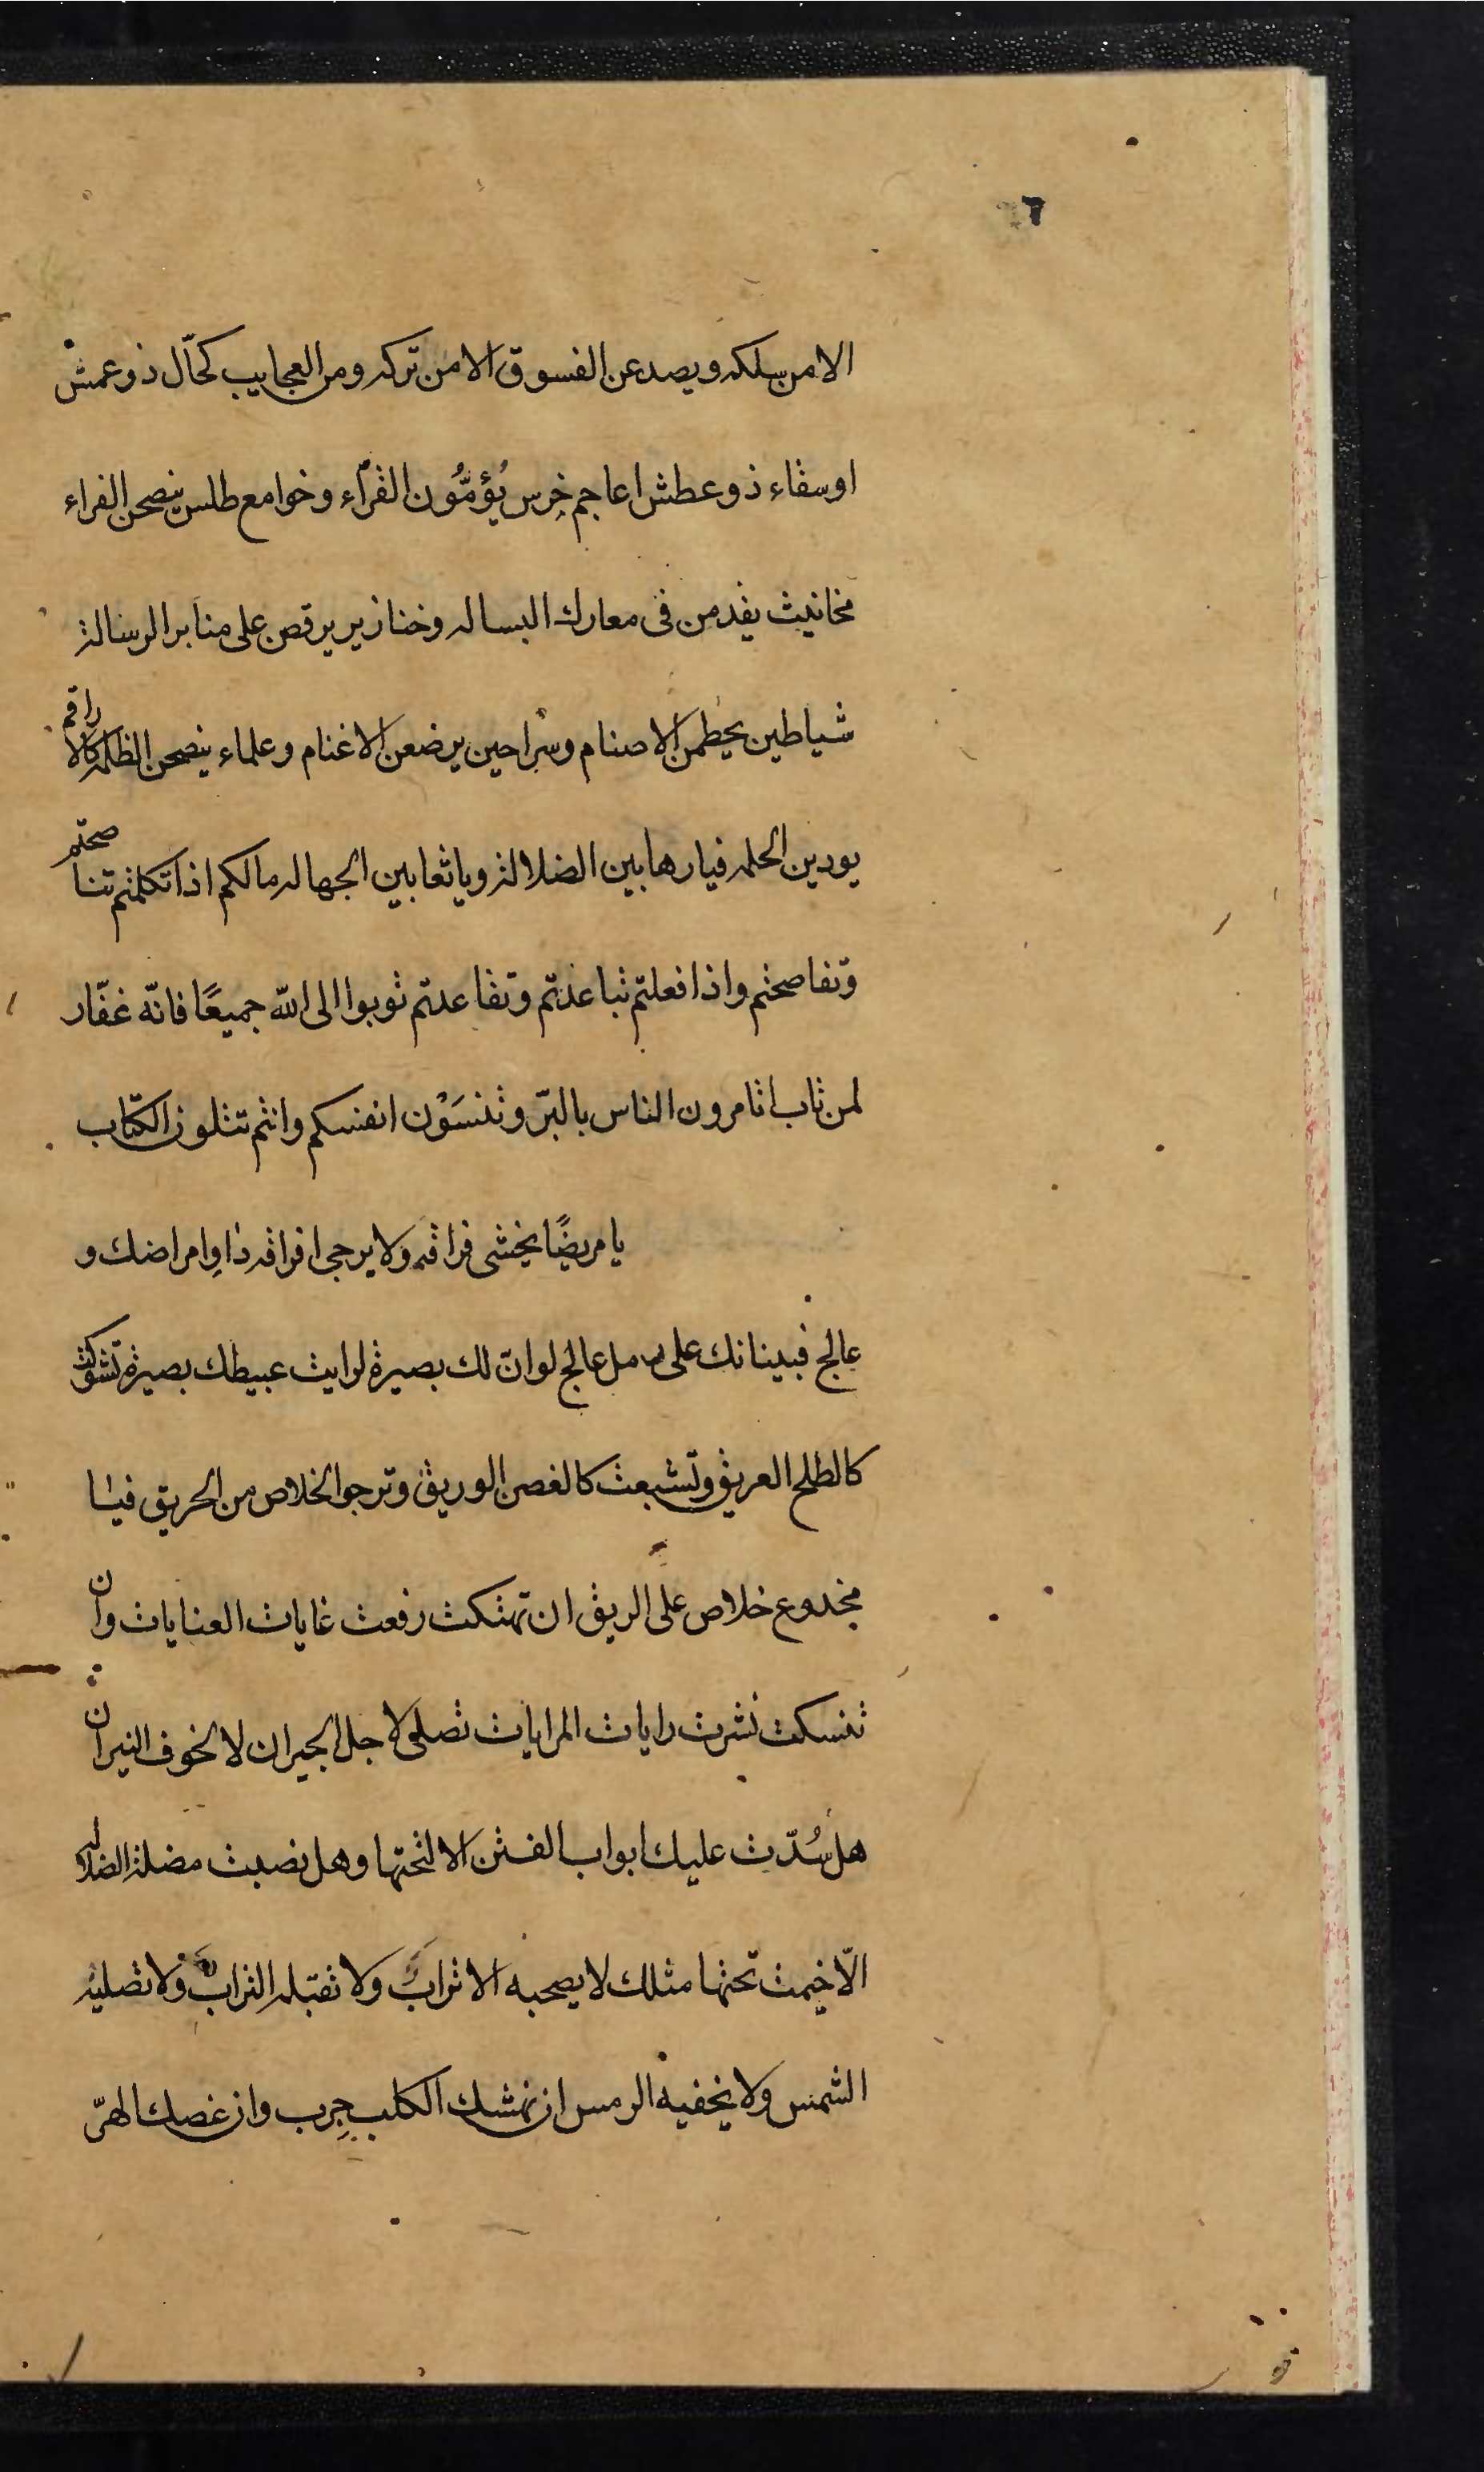 ٦
الا من سلكه ويصد عن الفسوق الا من تركه ومن العجايب كحّال ذو عمش
او سقاء ذو عطش اعاجم خرس يؤمّون القرّاء وخوامع طلس ينصحن الفراء
مخانيث يقدمن فى معارك البساله وخنازير يرقصن على منابر الرسالة
شياطين يحطمن الاصنام وسراحين يرضعن الاغنام وعلماء ينصحن الظلمه كالاراقم
يودين الحلمه فيا رهابين الضلالة ويا ثعابين الجهاله مالكم اذا تكلمتم تناصحتم
وتفاصحتم واذا فعلتم تباعدتم وتقاعدتم توبوا الى الله جميعًا فانّه غفّار
لمن تاب اتامرون الناس بالبرّ وتنسَوْن انفسكم وانتم تتلون الكتاب
يا مريضًا يخشى فراقه ولا يرجى افراقه داوِ امراضك و
عالج فبينا انك على رمل عالج لو انّ لك بصيرة لرايت عبيطك بصيرة تشوكت
كالطلح العريق وتشبعت كالغصن الوريق وترجو الخلاص من الحريق فيا
مخدوع خلاص على الريق ان تهتكت رفعت غايات العنايات وان
تنسكت نشرت رايات المرايات تصلى لاجل الجيران لا لخوف النيران
هل سُدّت عليك ابواب الفتن الا لتحتها وهل نصبت مضلة الضلاله
الّا خيمت تحتها مثلك لا يصحبه الاتراب ولا تقبله التراب ولا تصليه
الشمس ولا يخفيه الرمس ان نهشك الكلب جرب وان غصك الهرّ